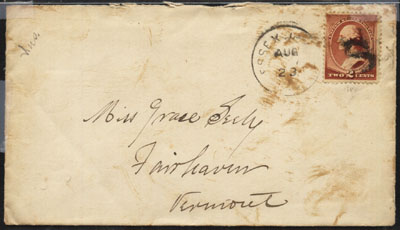 Ind.
ESSEX
AUG
23
TWO CENTS
Miss Grace Seely
Fairhaven
Vermont